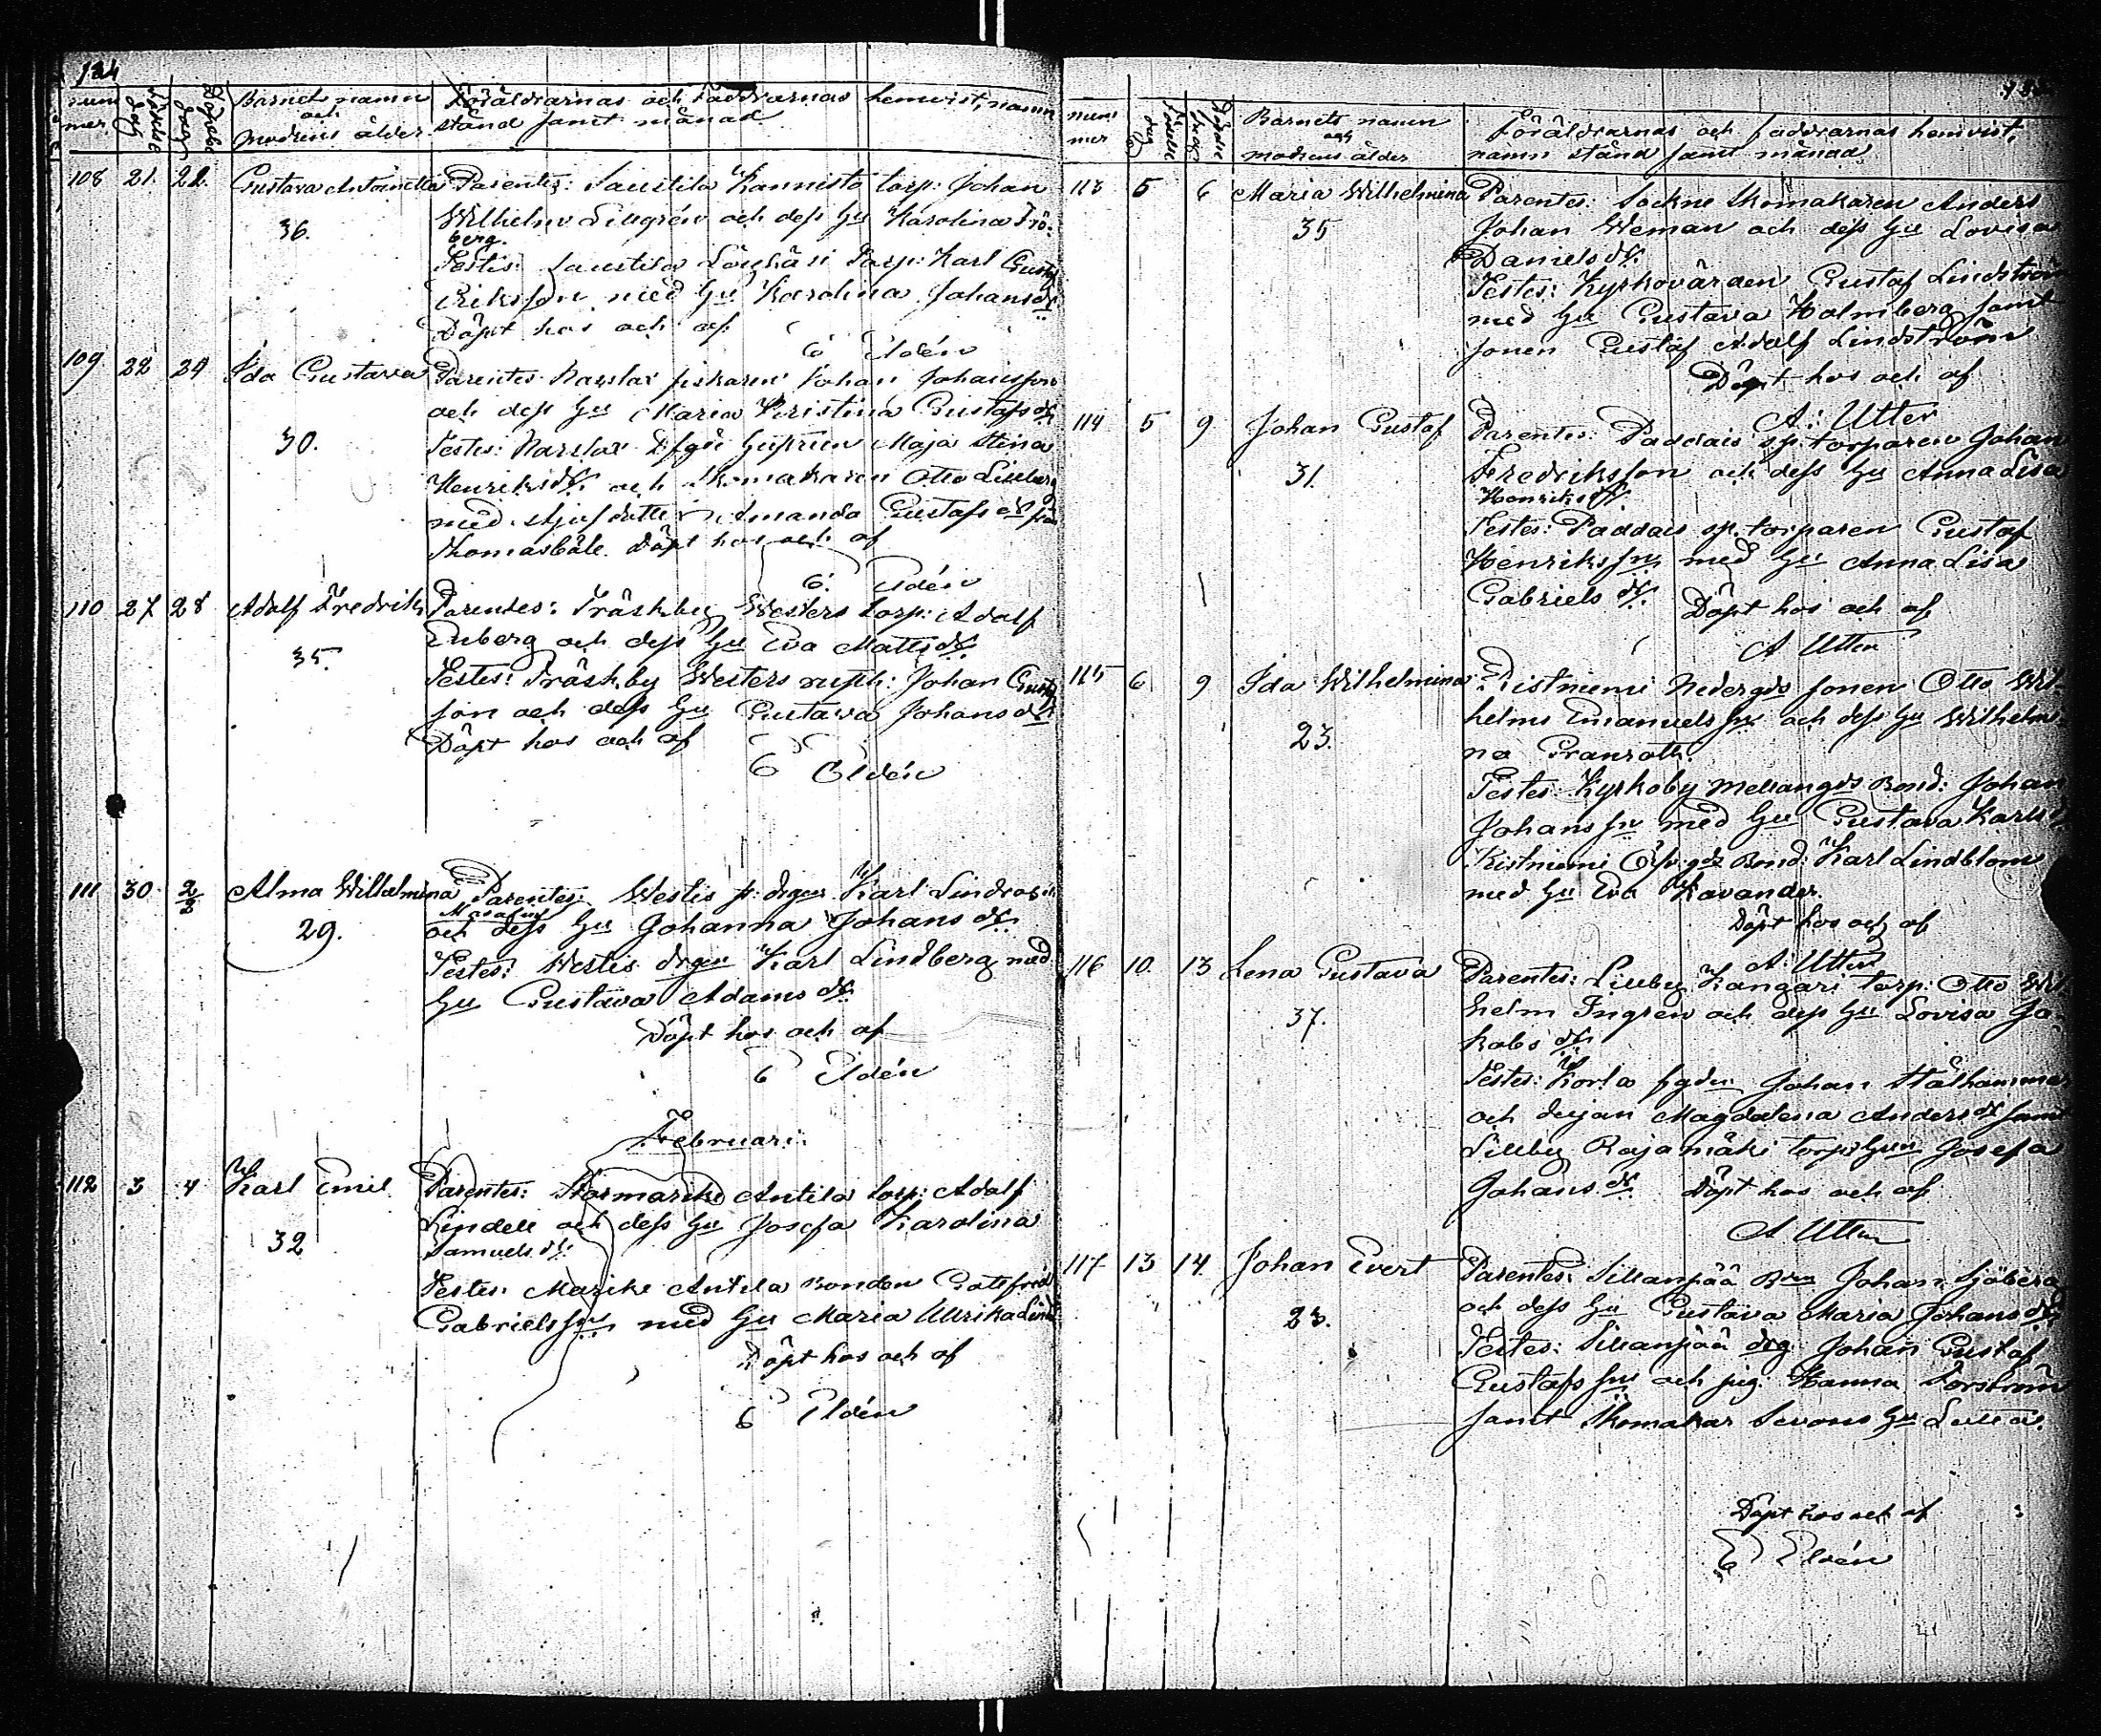 124
nummer
Födelse dag
Döpelse dag
Barnets namn och Modrens ålder
Föräldrarnas och Faddrarnas hemvist, namn
stånd samt månad.
108 21. 22. Gustava Antoinetta 36.
Parentes: Saustila Kannisto torp: Johan
Wilhelm Lillgrén och dess Hu Karolina Frö-
berg.
Testis: Saustila Torp: Karl Gustaf
Eriksson med Hu Karolina Johansdr.
Döpt hos och af
E Eldén
109 22 24 Ida Gustava 30.
Parentes fiskaren Johan Johansson
och dess Hu Maria Kristina Gustafsdr
Testes: hustrun Maja Stina
Henriksdr. och Skomakaren Otto Lillberg
med Amanda Gustafsdr från
Thomasböle. Döpt hos och af
E. Eldén
110 27 28 Adolf Fredrik 35.
Parentes: Träskby Westers torp: Adolf
Enberg och dess Hu Eva Mattsdr.
Testes: Träskby Westers Johan Gustaf
son och dess Hu Gustava Johansdr
Döpt hos och af
E Eldén
111 30 2/2 Alma Wilhelmina 29.
Parentes: Westis Karl Lindroos
och dess Hu Johanna Johansdr.
Testes: Westis drgen Karl Lindberg med
Hu Gustava Adamsdr.
Döpt hos och af
E Eldén
Februari.
112 3 4 Karl Emil 32
Parentes: Antila torp: Adolf
Lindell och dess Hu Josefa Karolina
Samuelsdr.
Testes: Marike Antila Bonden Gottfrid
Gabrielsson med Hu Maria Ulrika Lind
Döpt hos och af
E Eldén
nummer
Födelse dag
Döpelse dag
Barnets namn och modrens ålder
Föräldrarnas och faddrarnas hemvist,
namn stånd samt månad
113 5 6 Maria Wilhelmina 35
Parentes: Sockne Skomakaren Anders
Johan Weman och dess Hu Lovisa
Danielsdr.
Testes: Kyrkovärden Gustaf Lindström
med Hu Gustava Holmberg samt
sonen Gustaf Adolf Lindström
Döpt hos och af
A: Utter
114 5 9 Johan Gustaf 31.
Parentes: Paddais sp. torparen Johan
Fredriksson och dess Hu Anna Lisa
Henriksdr.
Testes: Paddais sp. torparen Gustaf
Henriksson med Hu Anna Lisa
Gabrielsdr. Döpt hos och af
A Utter
115 6 9 Ida Wilhelmina 23.
Ristniemi Nedergds sonen Otto Wil-
helm Emanuelsson och dess Hu Wilhelmi-
na Granroth.
Testes: Kyrkoby Mellangds Bond: Johan
Johansson med Hu Gustava Karlsdr
Ristniemi Öfvergds Bond: Karl Lindblom
med Hu Eva Kavander.
Döpt hos och af
A: Utter
116 10. 13 Lena Gustava 37.
Parentes: Lillby Kangari torp: Otto Wil
helm Ingren och dess Hu Lovisa Ja-
kobsdr
Testes: Korla Johan Stålhammar
och Magdalena Andersdr samt
Lillby Rajamäki torp:Hun Josefa
Johansdr. Döpt hos och af
A Utter
117 13 14 Johan Evert 23.
Parentes: Sillanpää Johan Sjöberg
och dess Hu Gustava Maria Johansdr.
Testes: Sillanpää drg Johan Gustaf
Gustafsson och pig: Hanna Forsström
samt Skomakar Hu
Döpt hos och af
E Eldén